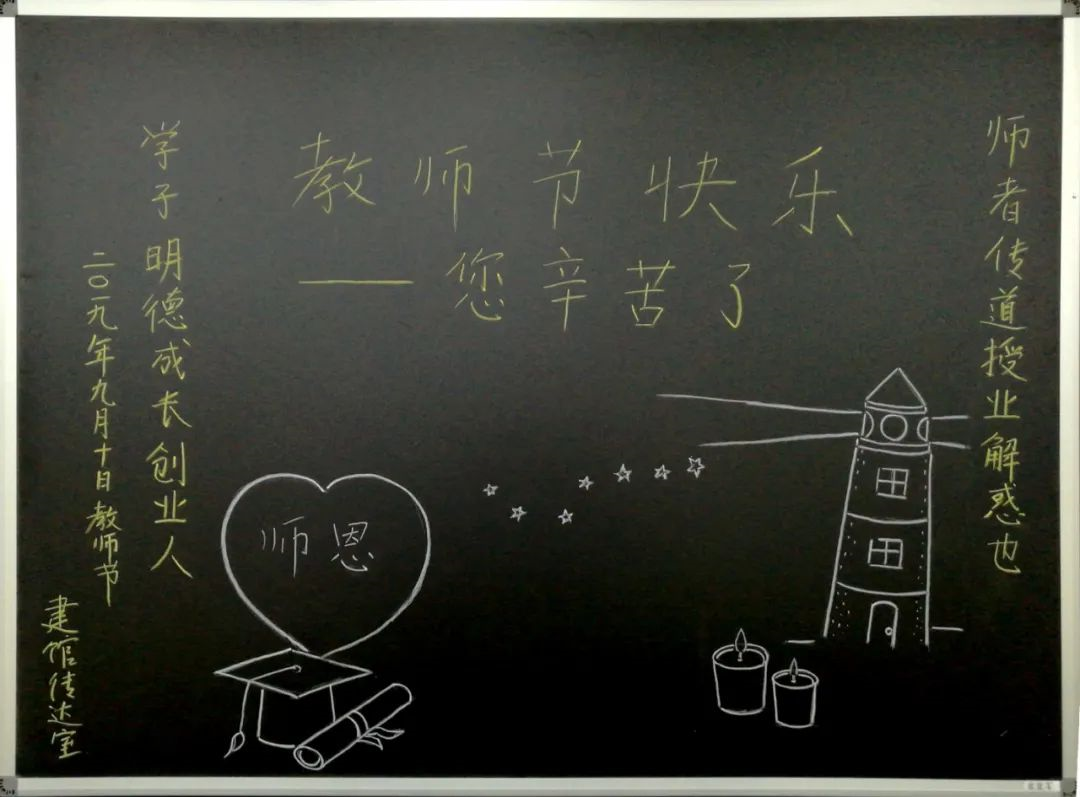 教师节快乐
——您辛苦了
师者传道授业解惑也
学子明德成长创业人
二〇一九年九月十日教师节
建馆传达室
师恩